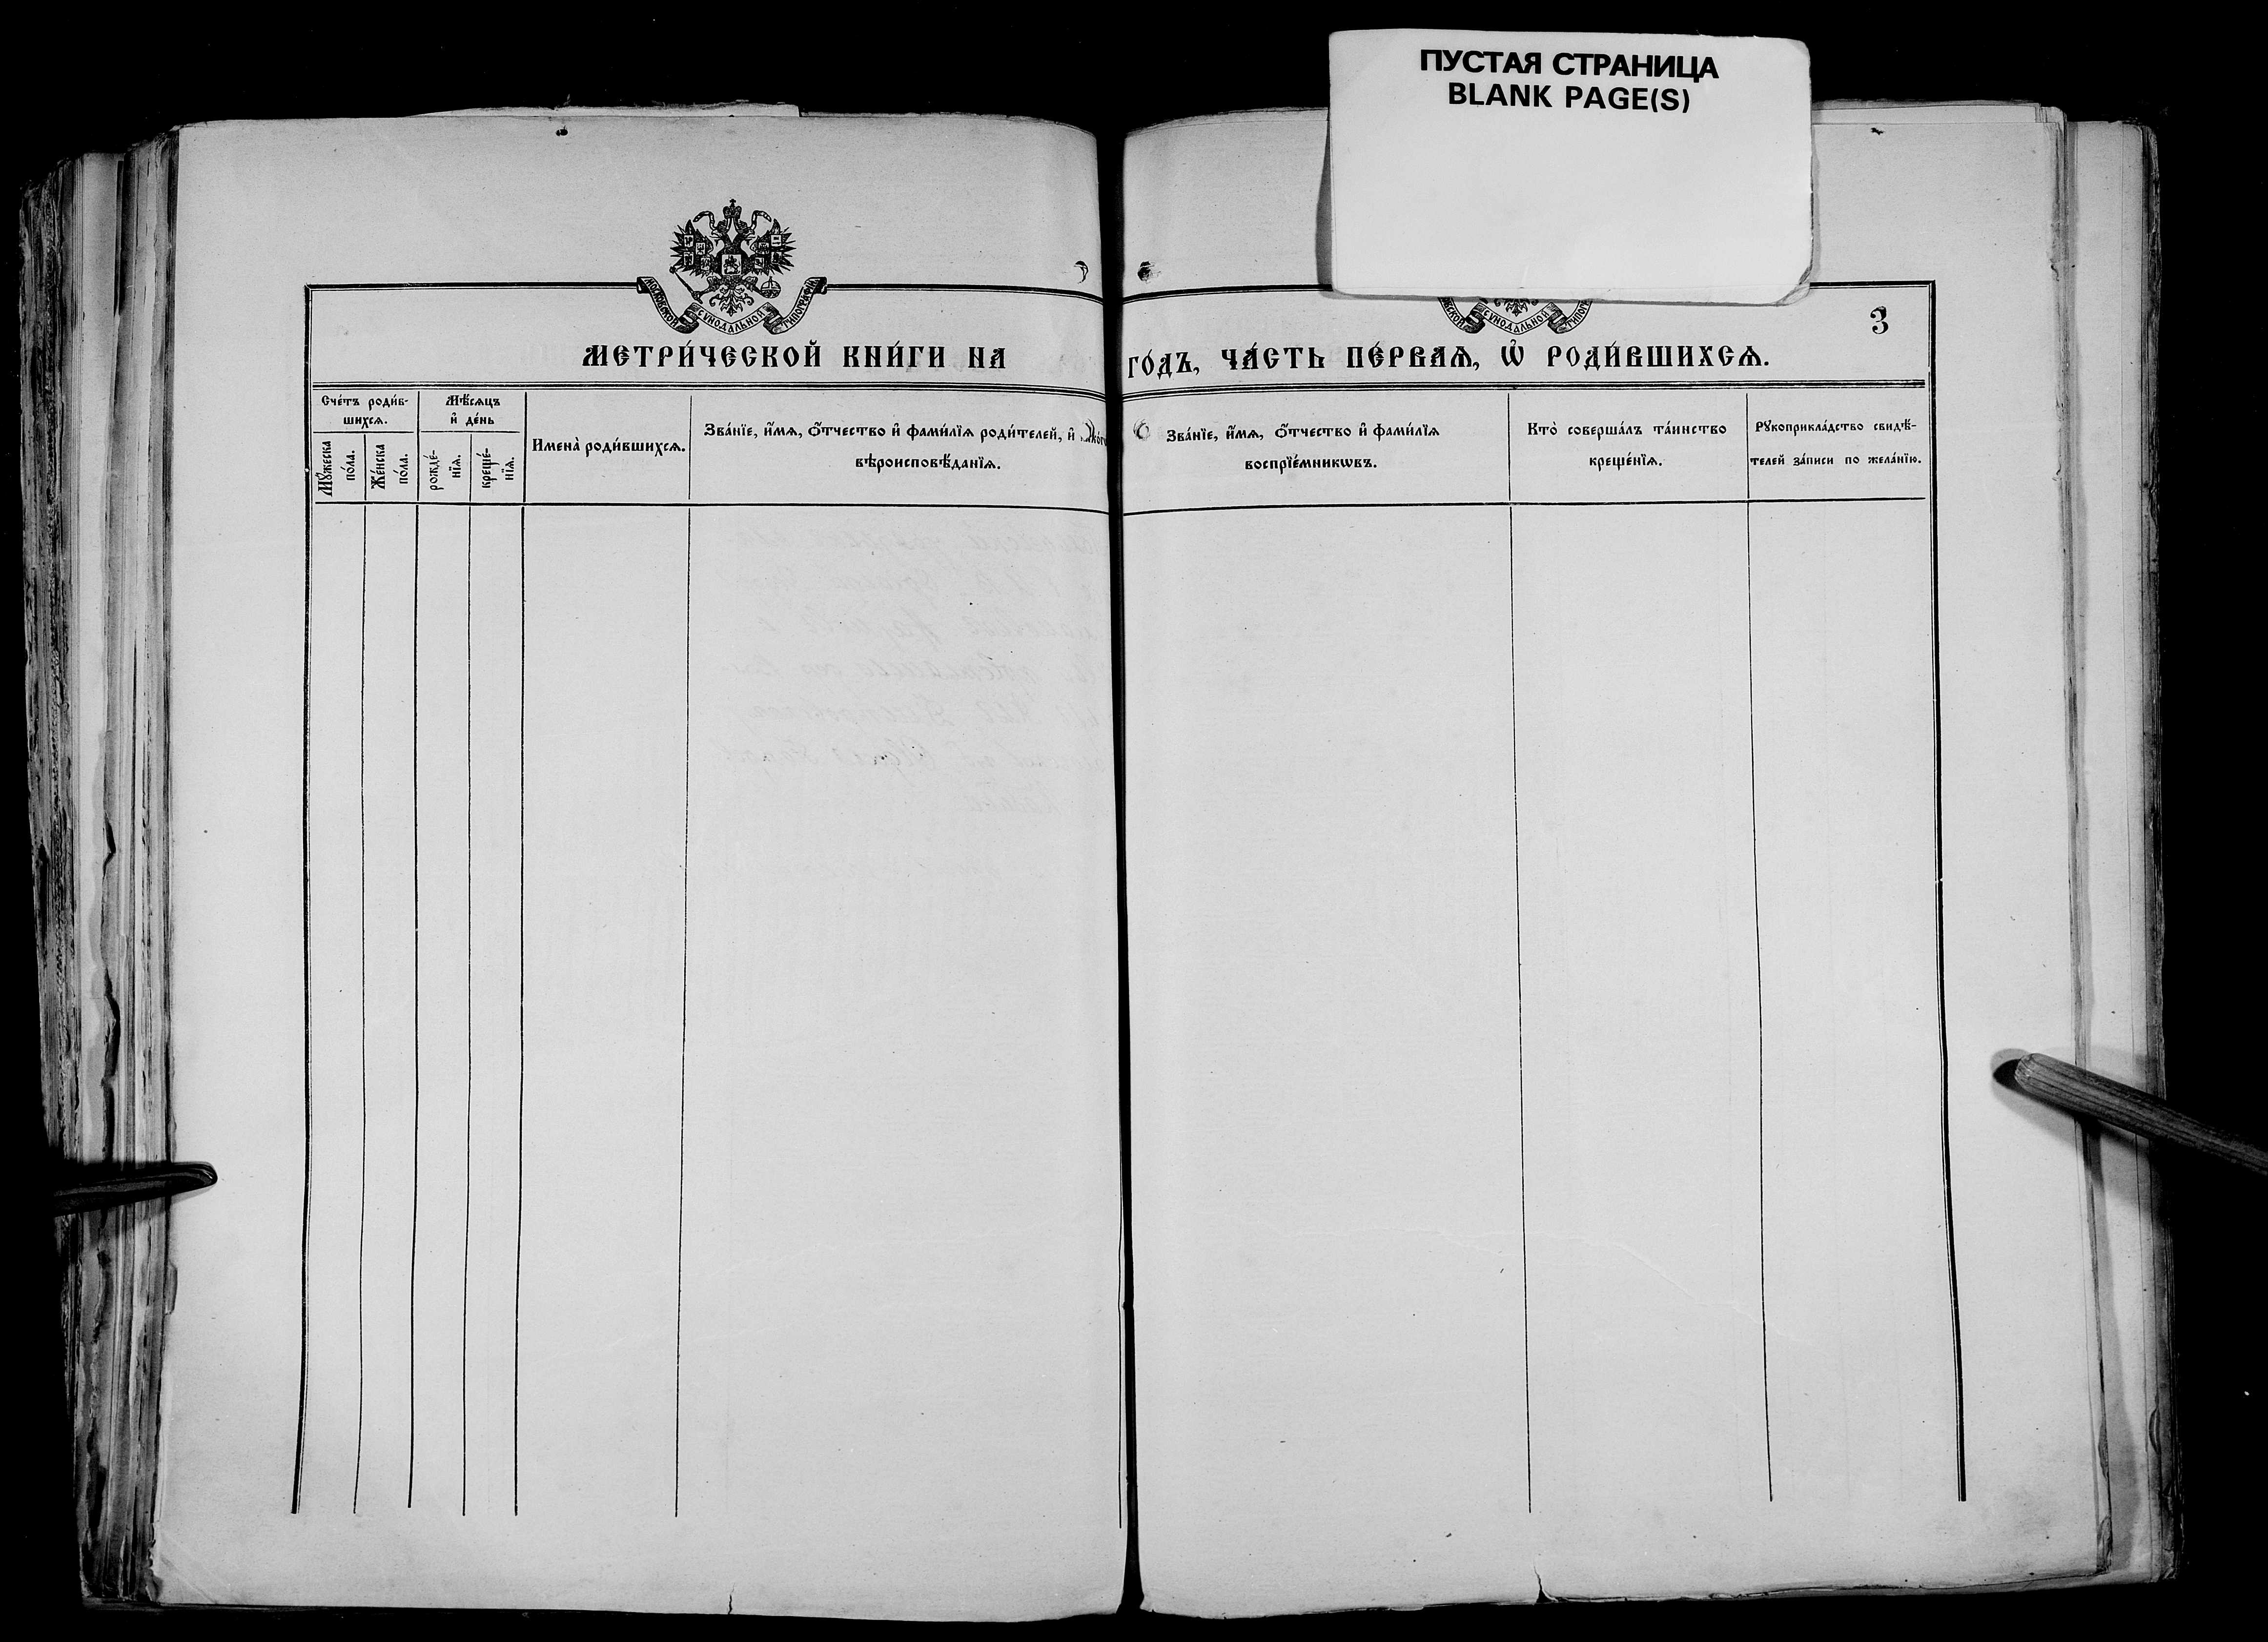 ПУСТАЯ СТРАНИЦА
BLANK PAGE(S)
МОСКОВСКОЙ СУНОДАЛЬНОЙ ТИПОГРАФІИ
СУНОДАЛЬНОЙ
3
МЕТРИ́ЧЕСКОЙ КНИ́ГИ НА
ГО́ДЪ, ЧА́СТЬ ПЕ́РВАѦ, Ѡ҆ РОДИ́ВШИХСѦ.
Сче́тъ роди́в-
шихсѧ.
Мꙋ́жеска
по́ла.
Же́нска
по́ла.
Мѣ́сѧцъ
и҆ де́нь
рожде́-
нїѧ.
креще́-
нїѧ.
Имена̀ роди́вшихсѧ.
Зва́нїе, и҆́мѧ, ѻ҆́тчество и҆ фами́лїѧ роди́телей, и҆
вѣроисповѣ́данїѧ.
Зва́нїе, и҆́мѧ, ѻ҆́тчество и҆ фами́лїѧ
воспрїе́мникѡвъ.
Кто̀ соверша́лъ та́инство
креще́нїѧ.
Рꙋкоприкла́дство свидѣ́-
телей за́писи по жела́нїю.